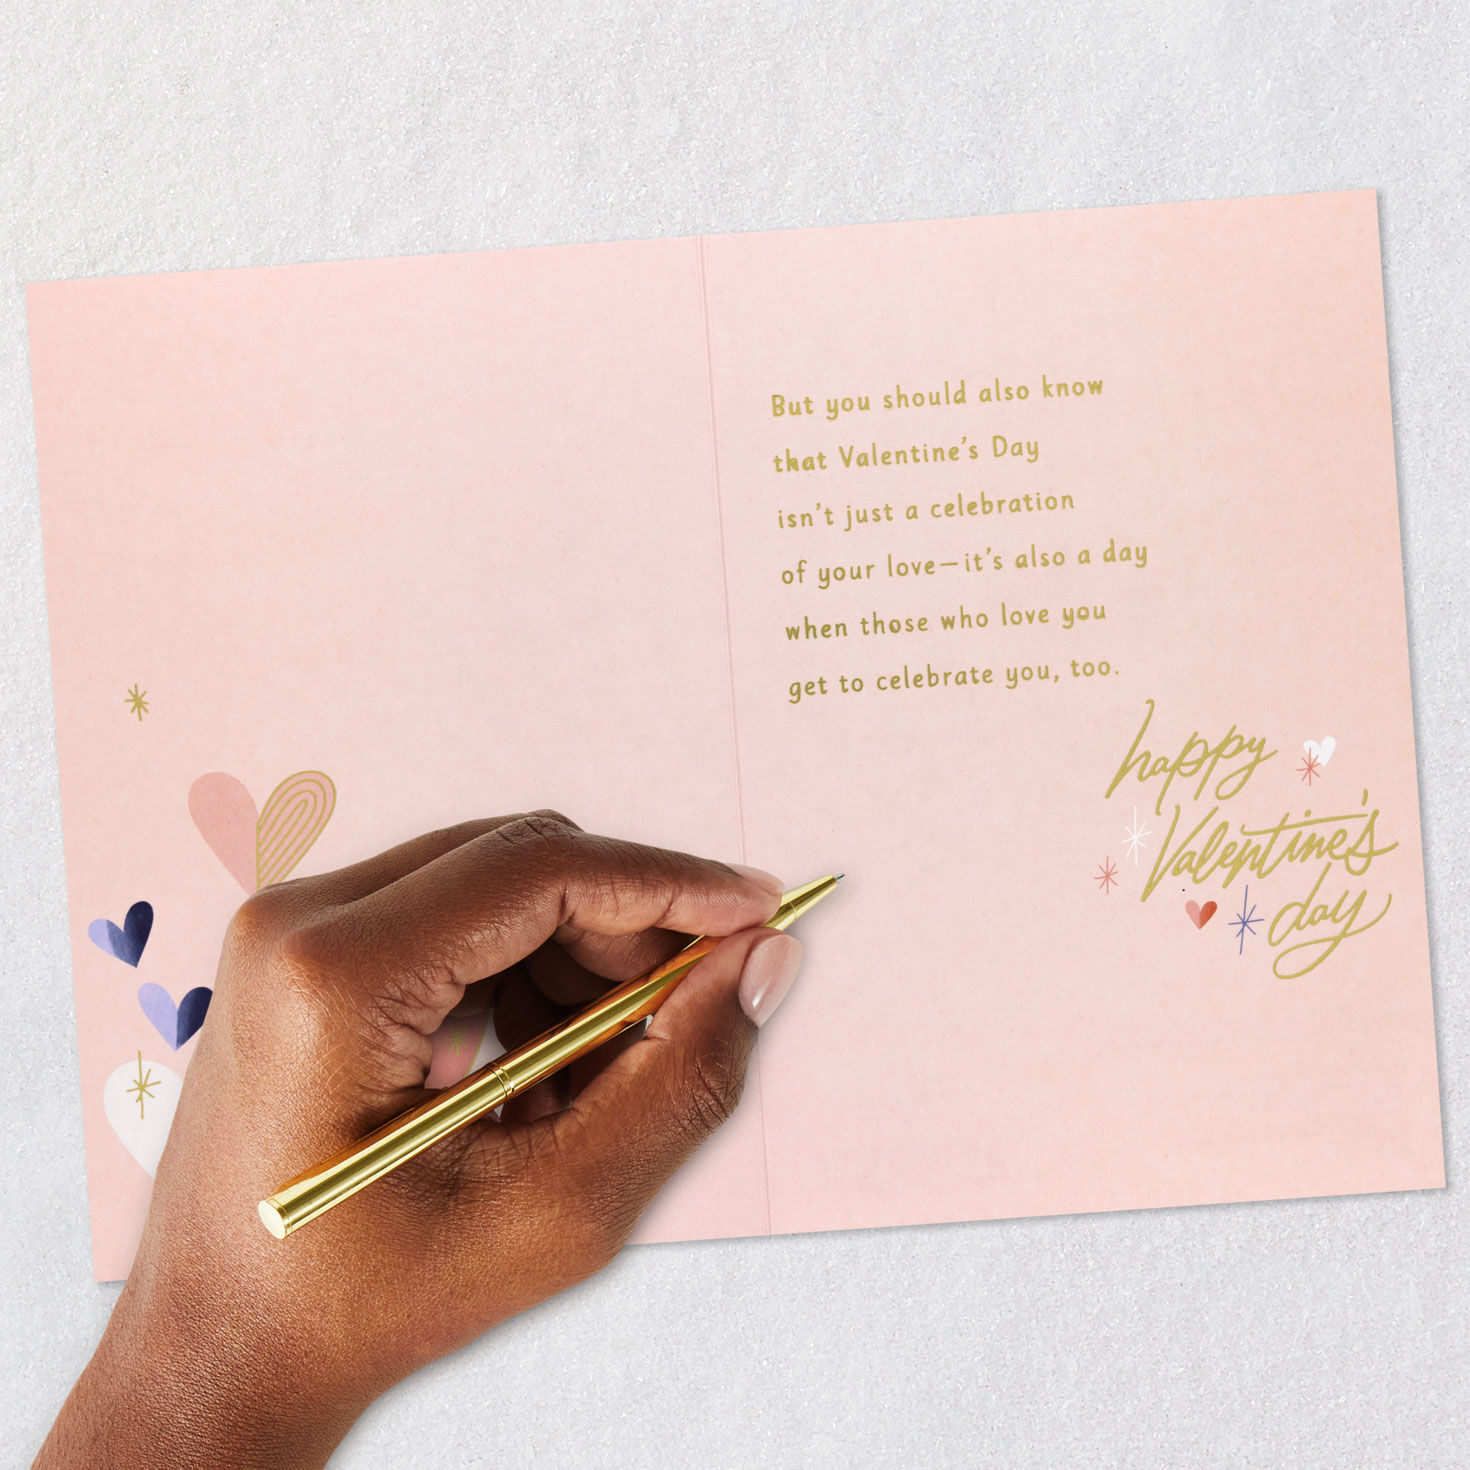 But you should also know
that Valentine's Day
isn't just a celebration
of your love—it's also a day
when those who love you
get to celebrate you, too.
happy
Valentine's
day